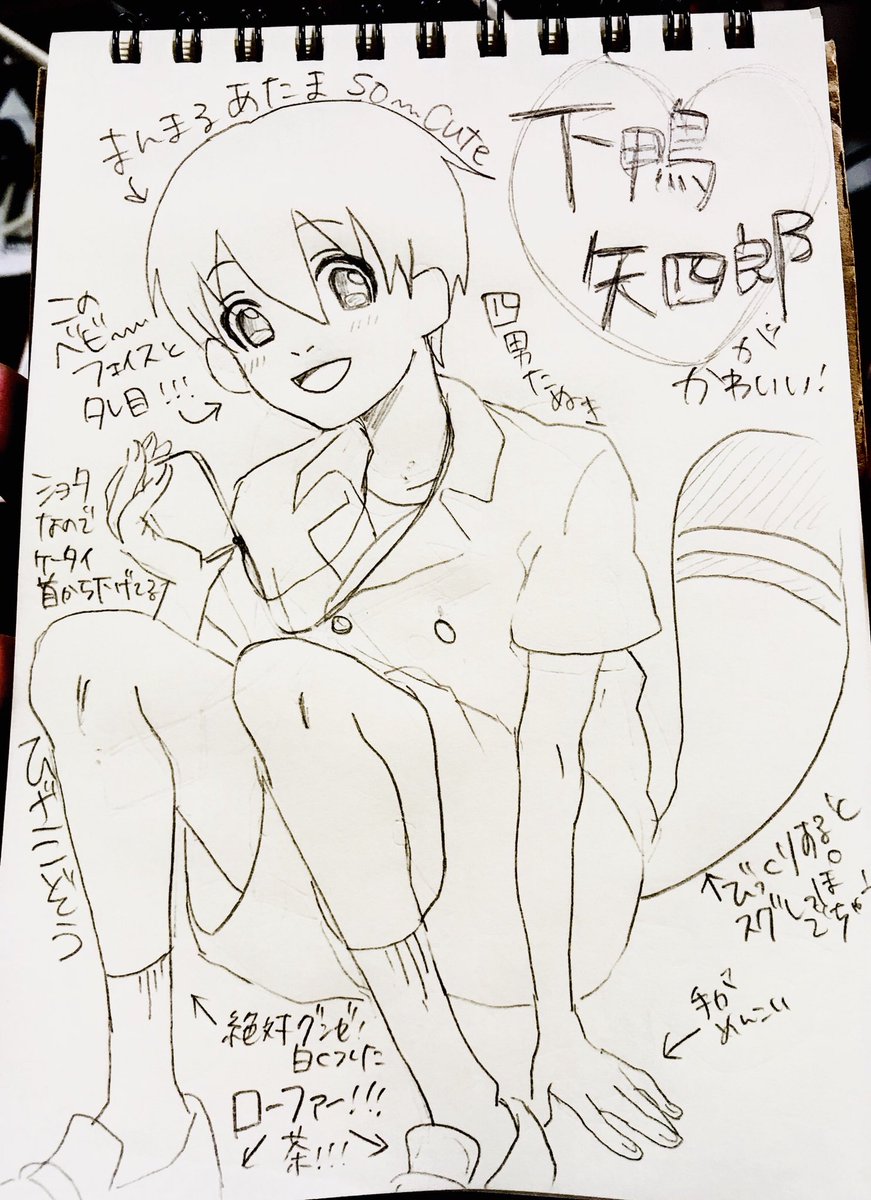 まんまるあたま so〜cute
下鴨
矢四郎
が
かわいい!
この
ベビ〜
フェイスと
タレ目!!!
四男
だぬき
ショタ
なので
ケータイ
首から下げてる
ひざこぞう
びっくりすると
スグしっぽ
でちゃう
手が
めんこい
絶対グンゼ!
白くつした
ローファー!!!
茶!!!